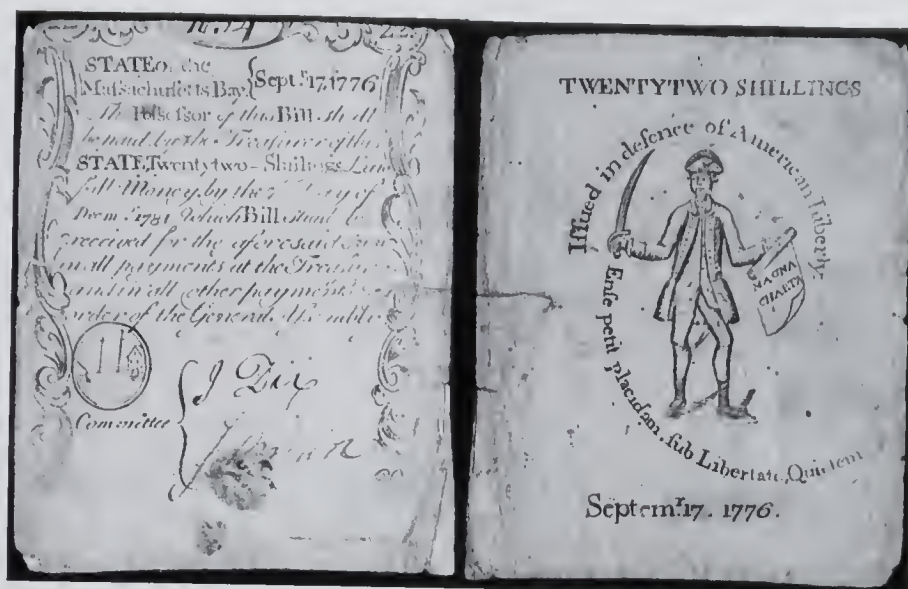 22
STATE of the
Maſsachuſetts Bay. Sept.r 17, 1776
The Poſseſsor of this Bill ſhall
be paid by the Treaſurer of this
STATE, Twenty two-Shillings Law
full Money by the day of
Decm.r 1781 Which Bill ſhall be
received for the aforeſaid Sum
in all payments at the Treaſury
and in all other payments by
order of the General Aſsembly
Committee
J Dix
TWENTYTWO SHILLINGS
Iſſued in defence of American Liberty.
MAGNA
CHARTA
Enſe petit placidam, ſub Libertate, Quietem
Septem.r 17. 1776.